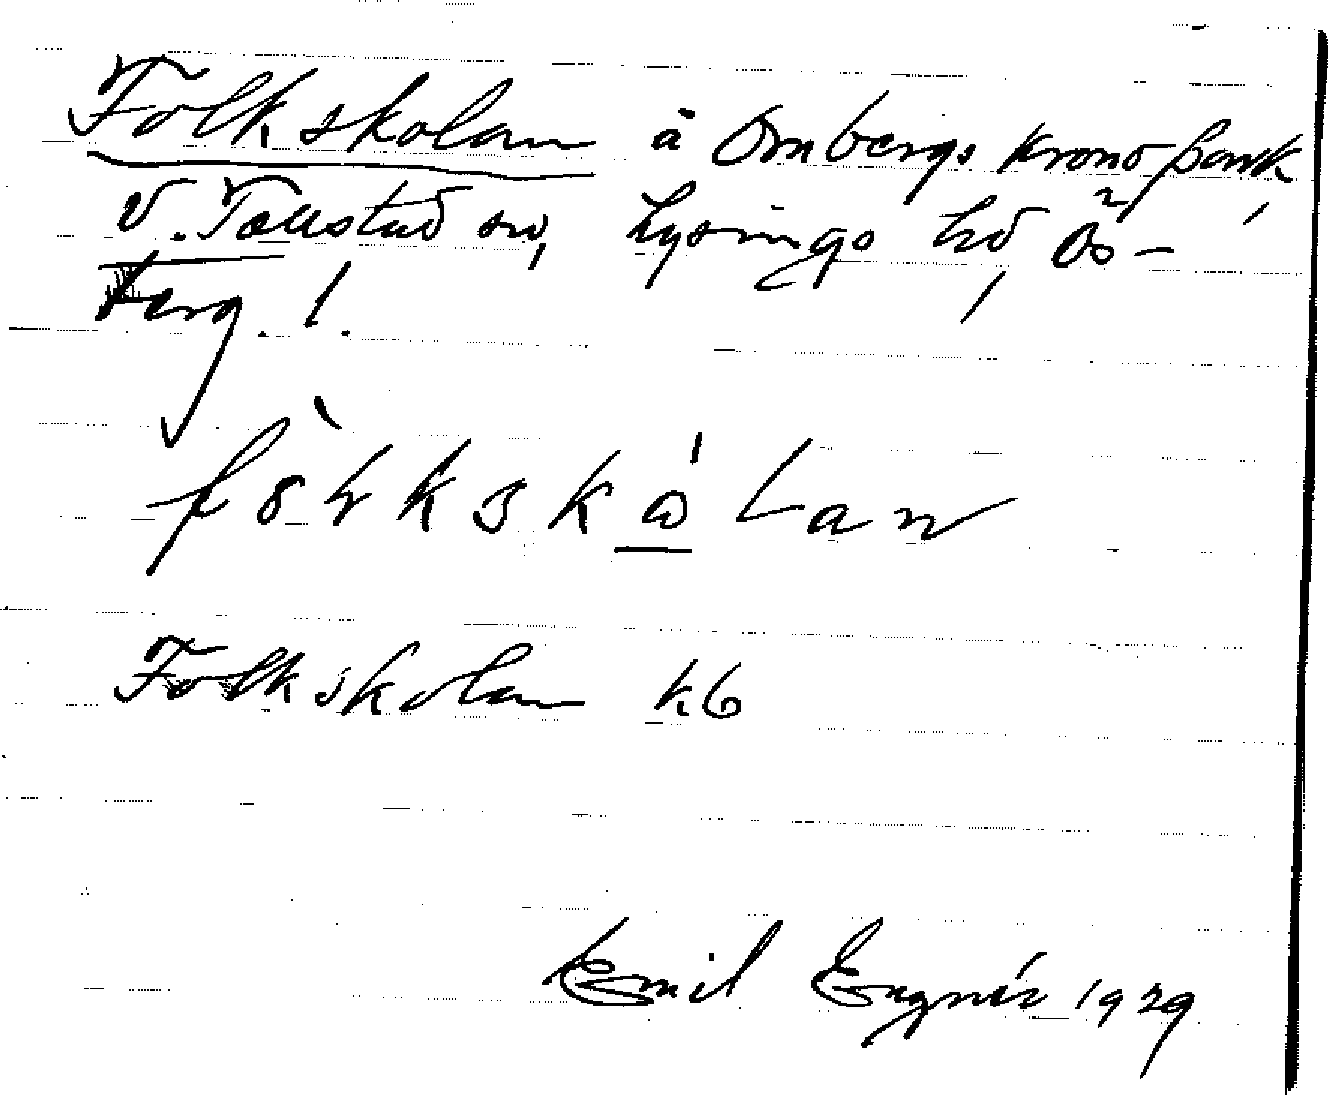 Folkskolan å Ombergs kronopark,
V. Tollstad sn, Lysings hd, Ös-
terg. l.
fòlkskólan
Folkskolan kb
Emil Engnér 1929